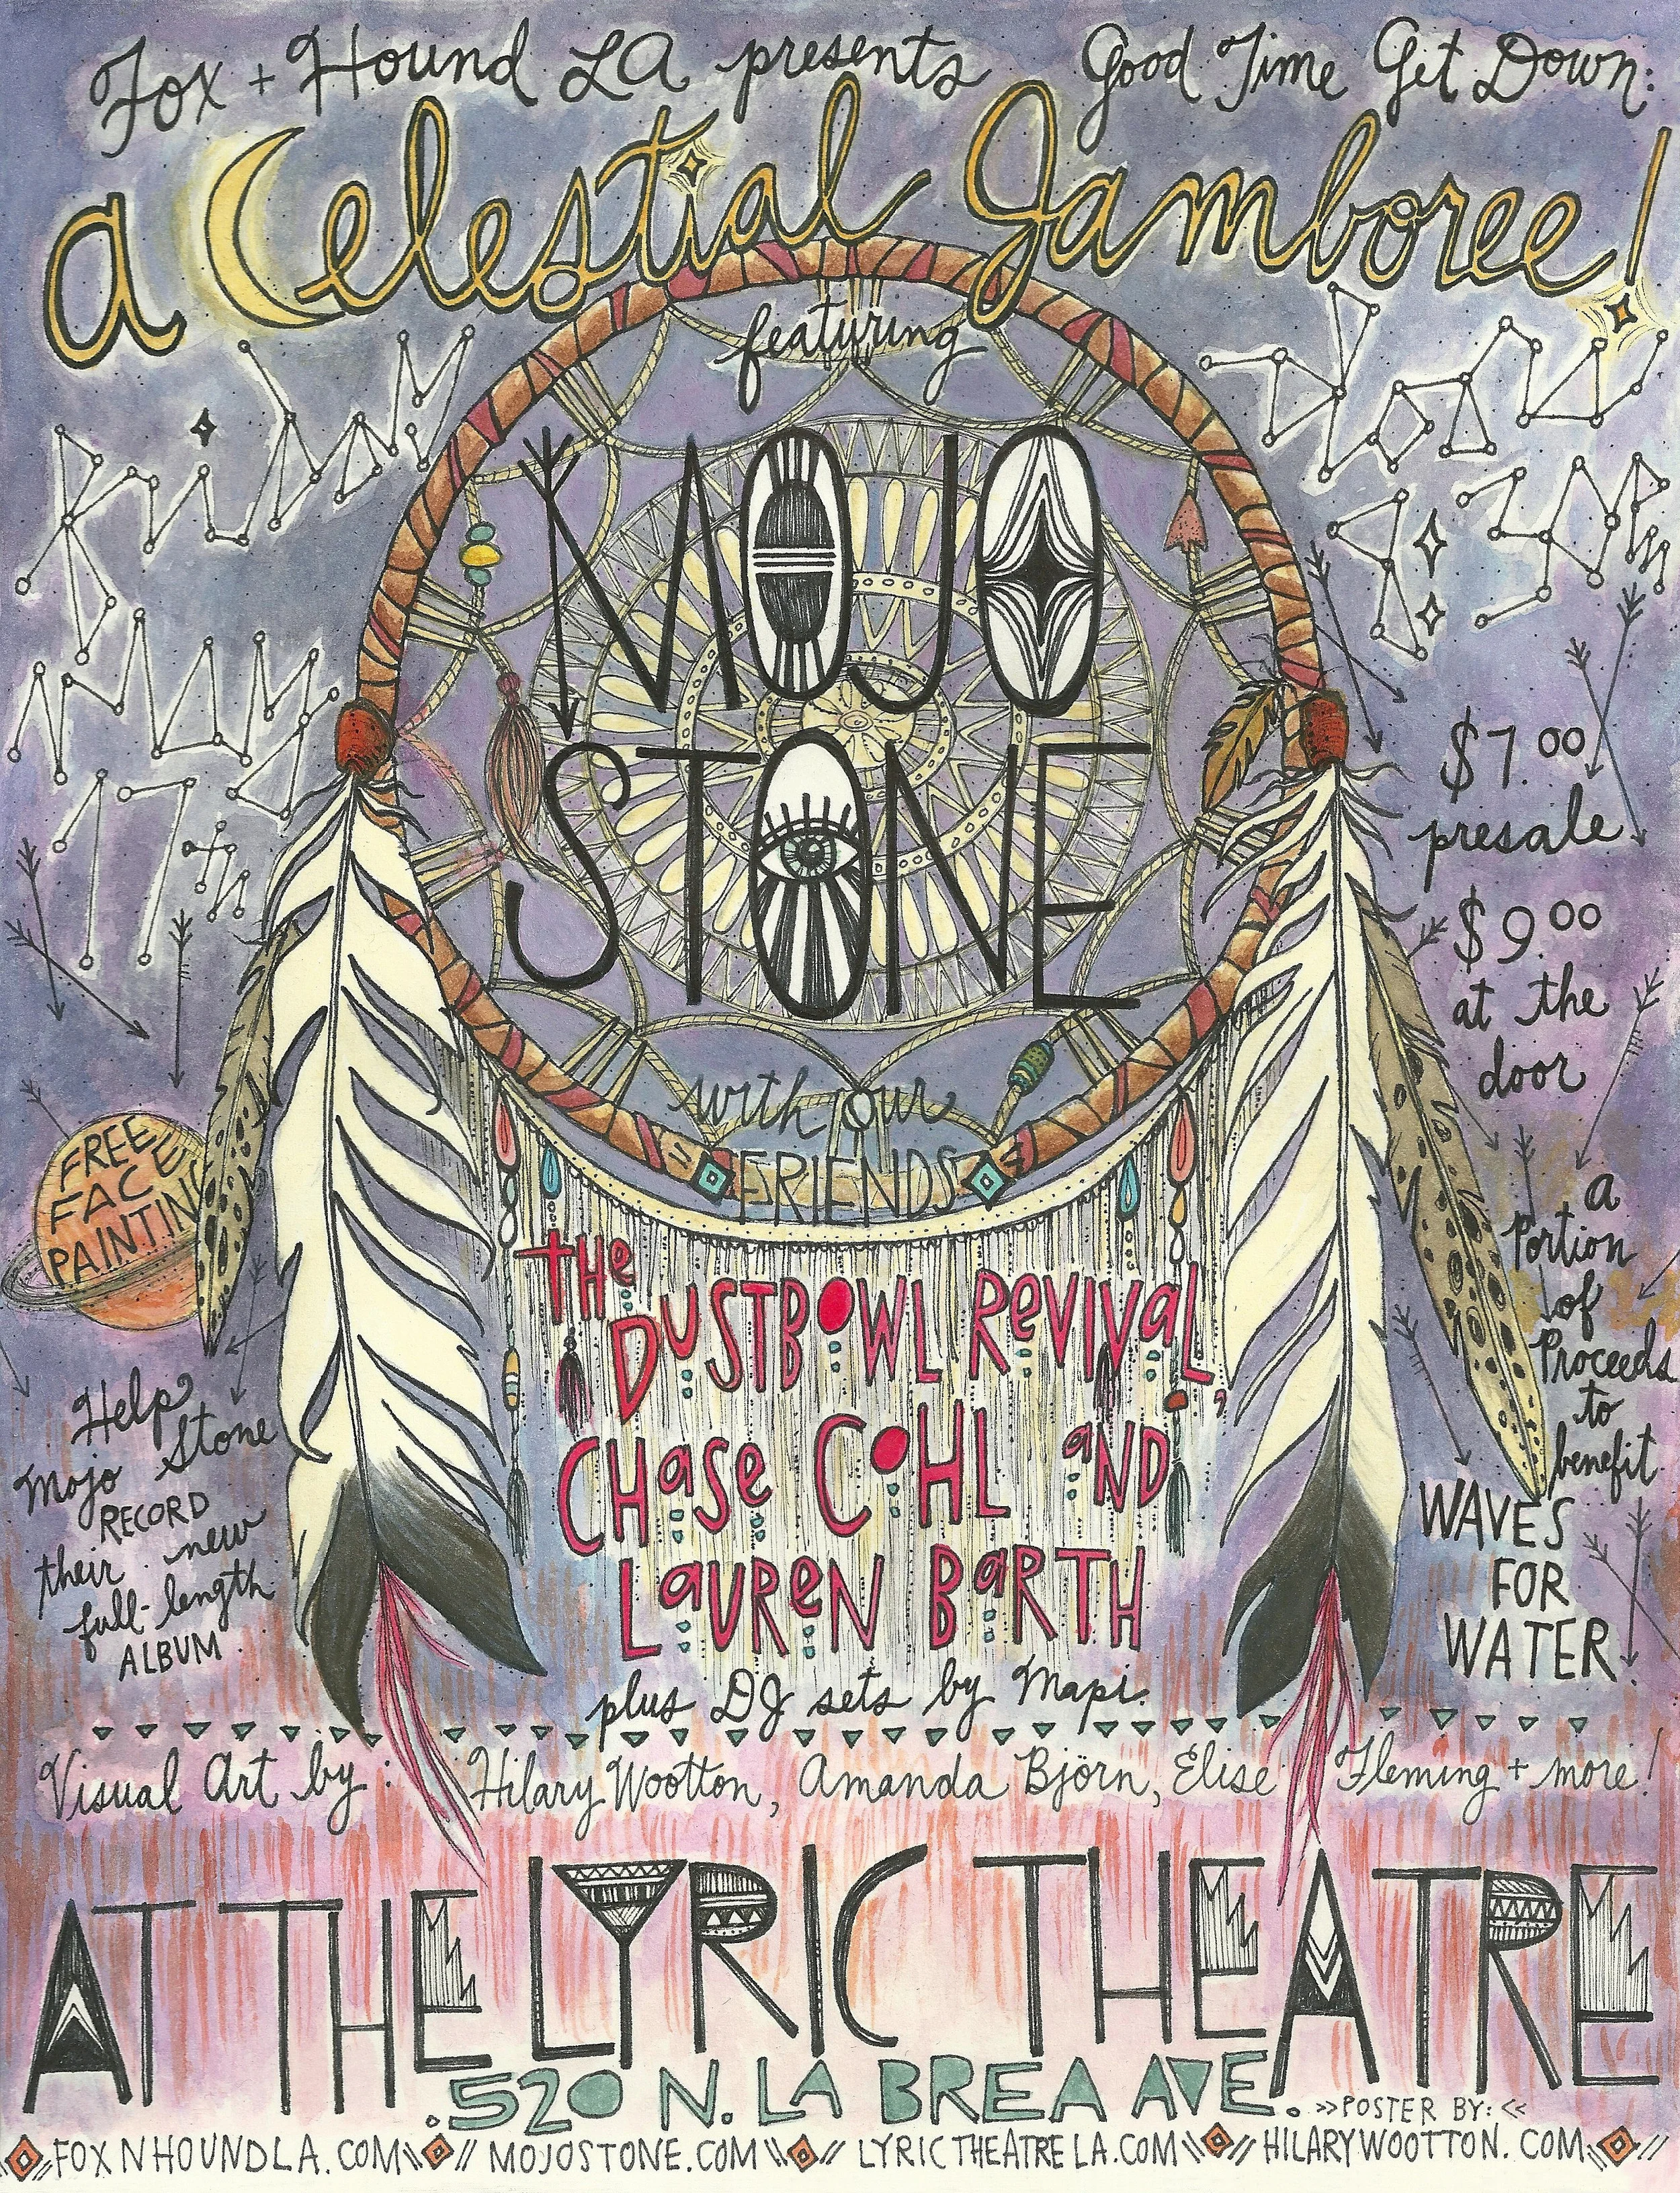 Fox + Hound LA presents Good Time Get Down:
a Celestial Jamboree!
featuring
FRIDAY
MAY
17th
DOORS
@ 7PM
MOJO
STONE
$7.00
presale
$9.00
at the
door
with our
FRIENDS
FREE
FACE
PAINTING
the
DUSTBOWL REVIVAL,
CHASE COHL AND
LAUREN BARTH
plus DJ sets by Mapi.
Help
Mojo Stone
RECORD
their new
full-length
ALBUM
a
Portion
of
Proceeds
to
benefit
WAVES
FOR
WATER.
Visual Art by: Hilary Wootton, Amanda Björn, Elise Fleming + more!
AT THE LYRIC THEATRE
.520 N. LA BREA AVE.
>>POSTER BY:<<
FOXNHOUNDLA.COM\\ // MOJOSTONE.COM\\ // LYRICTHEATRELA.COM\\ // HILARYWOOTTON.COM\\ //